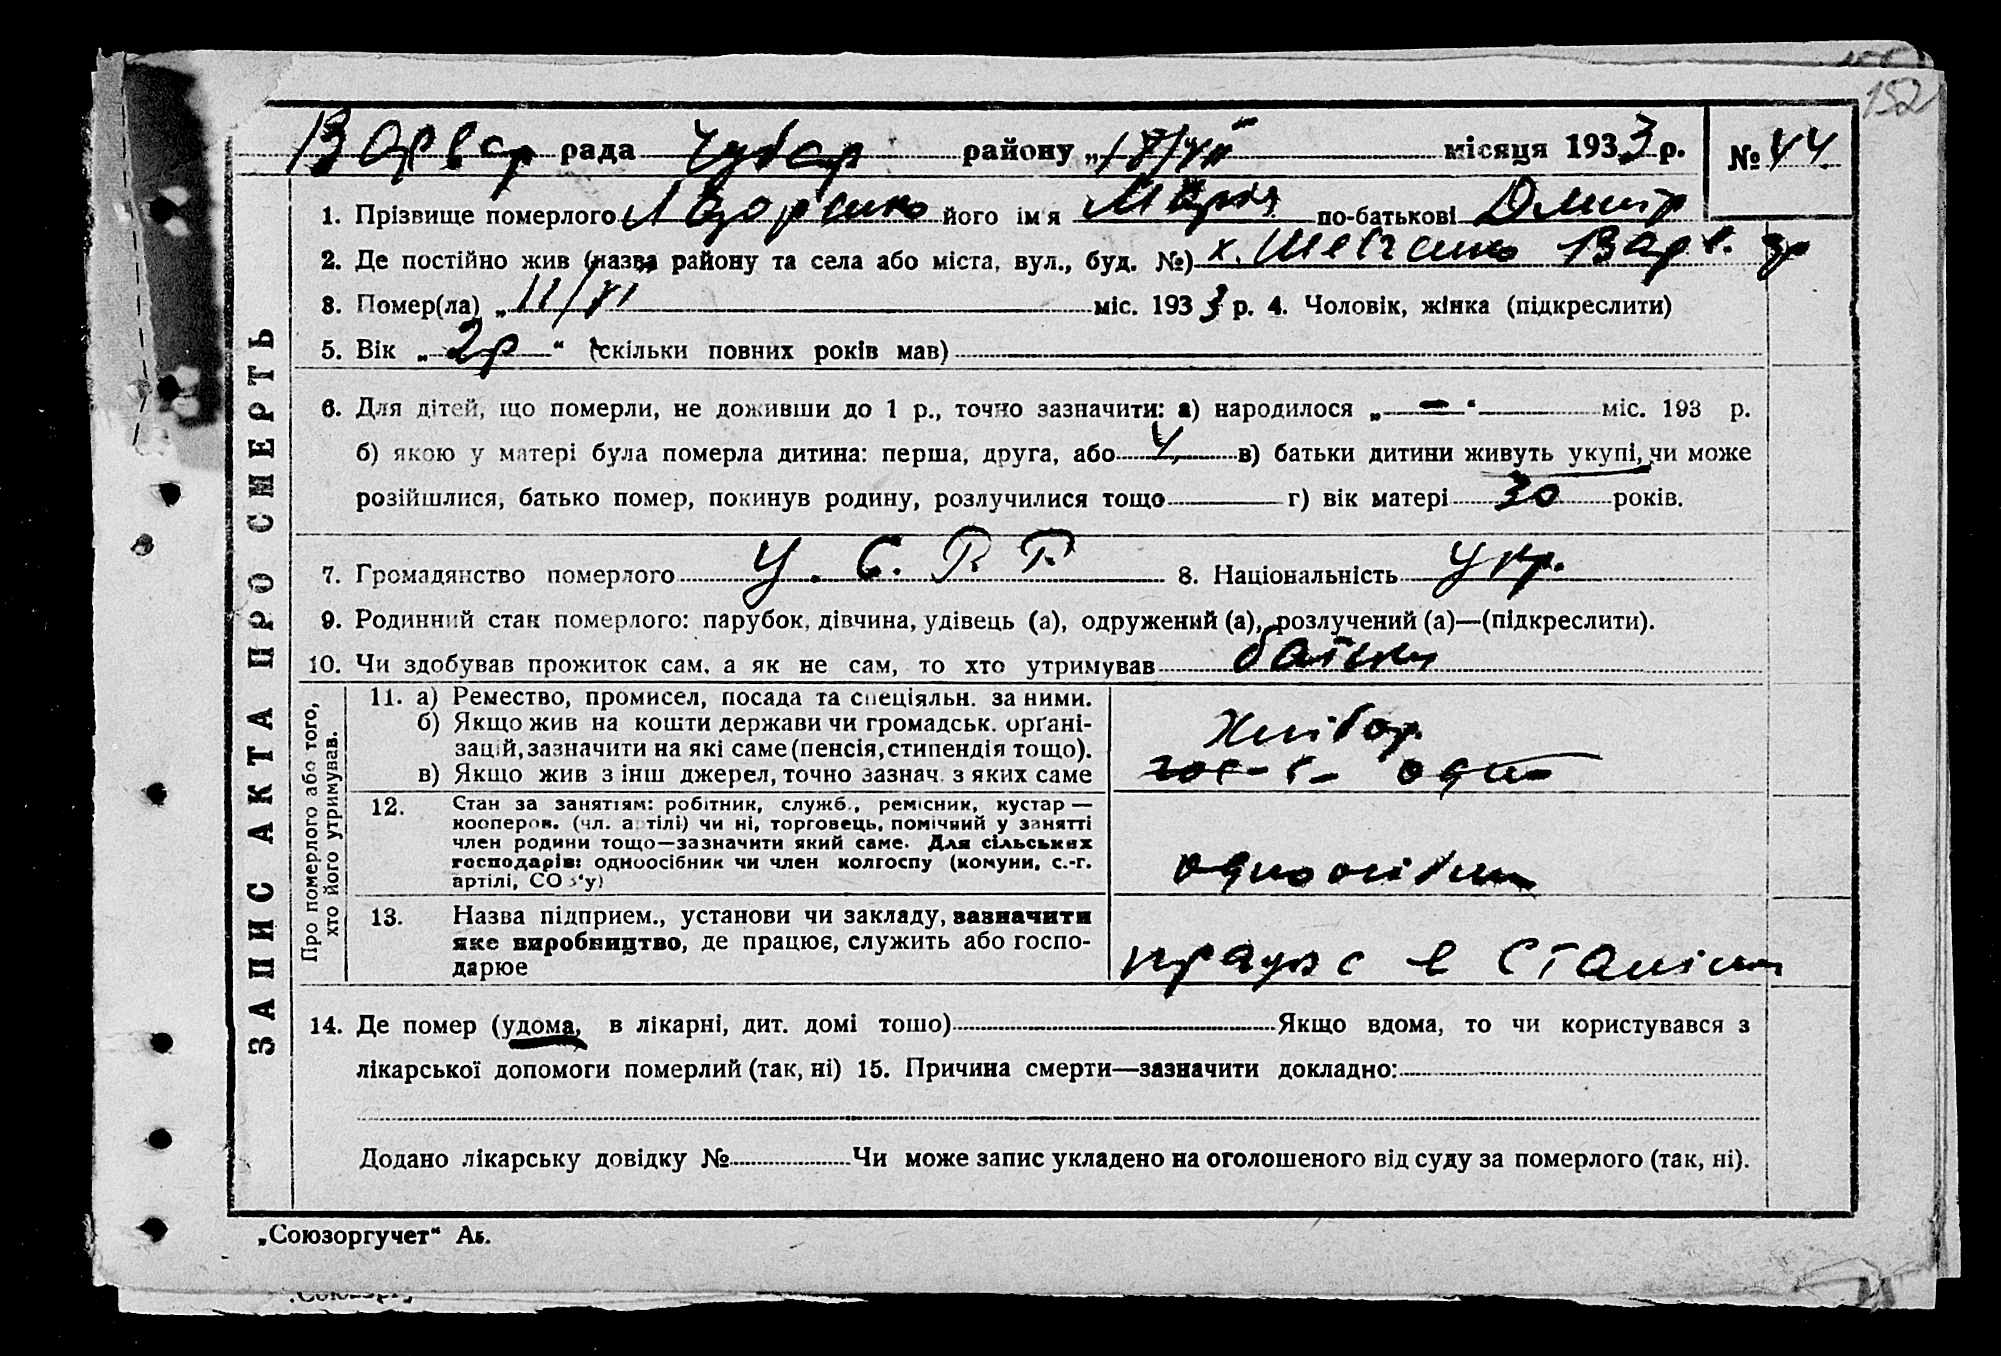 152
Варвар рада Чубар району „18/VII місяця 1933 р. № 44
1. Прізвище померлого Лазоренко його ім'я Марія по-батькові Дмитр
2. Де постійно жив (назва району та села або міста, вул., буд. №) х. Шевченко Варв. зр
3. Помер(ла) „11/VI міс. 1933 р. 4. Чоловік, жінка (підкреслити)
5. Вік „2р“ (скільки повних років мав)
6. Для дітей, що померли, не доживши до 1 р., точно зазначити: а) народилося „—“ міс. 193 р.
б) якою у матері була померла дитина: перша, друга, або 4, в) батьки дитини живуть укупі, чи може
розійшлися, батько помер, покинув родину, розлучилися тощо г) вік матері 30 років.
7. Громадянство померлого У. С. Р. Р. 8. Національність Укр.
9. Родинний стан померлого: парубок, дівчина, удівець (а), одружений (а), розлучений (а)—(підкреслити).
10. Чи здобував прожиток сам, а як не сам, то хто утримував батьки
ЗАПИС АКТА ПРО СМЕРТЬ
Про померлого або того,
хто його утримував.
11. а) Ремество, промисел, посада та спеціяльн. за ними.
б) Якщо жив на кошти держави чи громадськ. орґані-
зацій, зазначити на які саме (пенсія, стипендія тощо).
в) Якщо жив з інш джерел, точно зазнач. з яких саме
Хлібор.
12. Стан за заняттям: робітник, служб., ремісник, кустар —
кооперов. (чл. артілі) чи ні, торговець, помічний у занятті
член родини тощо—зазначити який саме. Для сільських
господарів: одноосібник чи член колгоспу (комуни, с.-г.
артілі, СОЗ'у)
одноосібник
13. Назва підприєм., установи чи закладу, зазначити
яке виробництво, де працює, служить або госпо-
дарює
працює в Сталіни
14. Де помер (удома, в лікарні, дит. домі тошо) Якщо вдома, то чи користувався з
лікарської допомоги померлий (так, ні) 15. Причина смерти—зазначити докладно:
Додано лікарську довідку № Чи може запис укладено на оголошеного від суду за померлого (так, ні).
„Союзоргучет“ Аб.